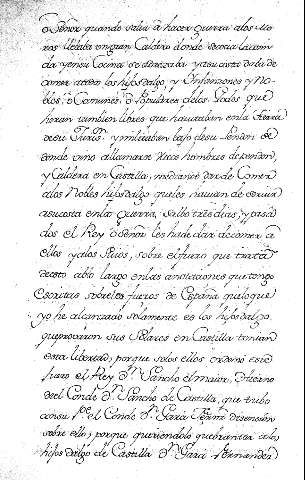 ó Señor quando salia á hacer guerra á los Mo-
ros llebaba un gran Caldero donde se
da y en su Cocina se y a su costa daba de
comer á todos los hijosdalgo, y Infanzones y No-
bles, ó Comunes, ó Populares de los Godos que
heran tambien libres que havitaban en la tierra
de su y militaban bajo de su Pendon de
donde vino á llamarse Ricos hombres de pendon,
y Caldera en Castilla, mediante dar de Comer
á los Nobles hijosdalgo que les havian de servir
á su costa en la Guerra, solo tres dias, y pasa-
dos el Rey ó Señor les ha de dar de comer á
ellos y á los Suios, sobre el fuero que trata
de esto ablo largo en las anotaciones que tengo
escritas sobre los fueros de España que lo que
yo he alcanzado solamente es los hijosdalgo
que provaron sus Solares en Castilla tenian
esta libertad, porque solos ellos ordenó este
fuero el Rey Dn. Sancho el maior, Visino
de el Conde Dn. Sancho de Castilla, que tubo
con su Pe. el Conde Dn. Garzia Fernz. disension
sobre ello; porque queriendoles quebrantar á los
hijosdalgo de Castilla Dn. Garzia Fernandez